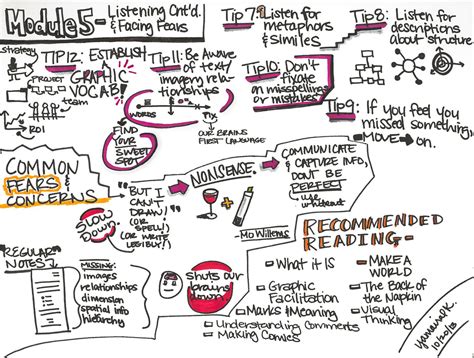 Module 5-
Listening Cnt'd.
& Facing Fears
Tip 7: Listen for
metaphors
& Similes
Tip 8: Listen for
descriptions
about structure
strategy
TIP 12: ESTABLISH
A
GRAPHIC
VOCAB!
PROJECT
team
ROI
Tip 11: Be Aware
of text/
imagery rela-
tionships
words
Pix
FIND
YOUR
SWEET
SPOT
OUR BRAINS
FIRST LANGUAGE
Tip 10: Don't
fixate
on
misspellings
or mistakes
Tip 9: If you feel you
missed something
MOVE on.
COMMON
FEARS &
CONCERNS
"BUT I
CAN'T
DRAW!
(OR
SPELL!)
(OR WRITE
LEGIBLY!)
Slow
Down.
NONSENSE.
COMMUNICATE
& CAPTURE INFO,
DONT BE
PERFECT
use
whiteout
- Mo Willems
"REGULAR"
NOTES
MISSING:
images
relationships
dimension
spatial info
hierarchy
shuts our
brains
down!
RECOMMENDED
READING-
- What it IS
- Graphic
Facilitation
- Marks & Meaning
- Understanding Comments
- Making Comics
- MAKE A
WORLD
- The Back of
the Napkin
- Visual
Thinking